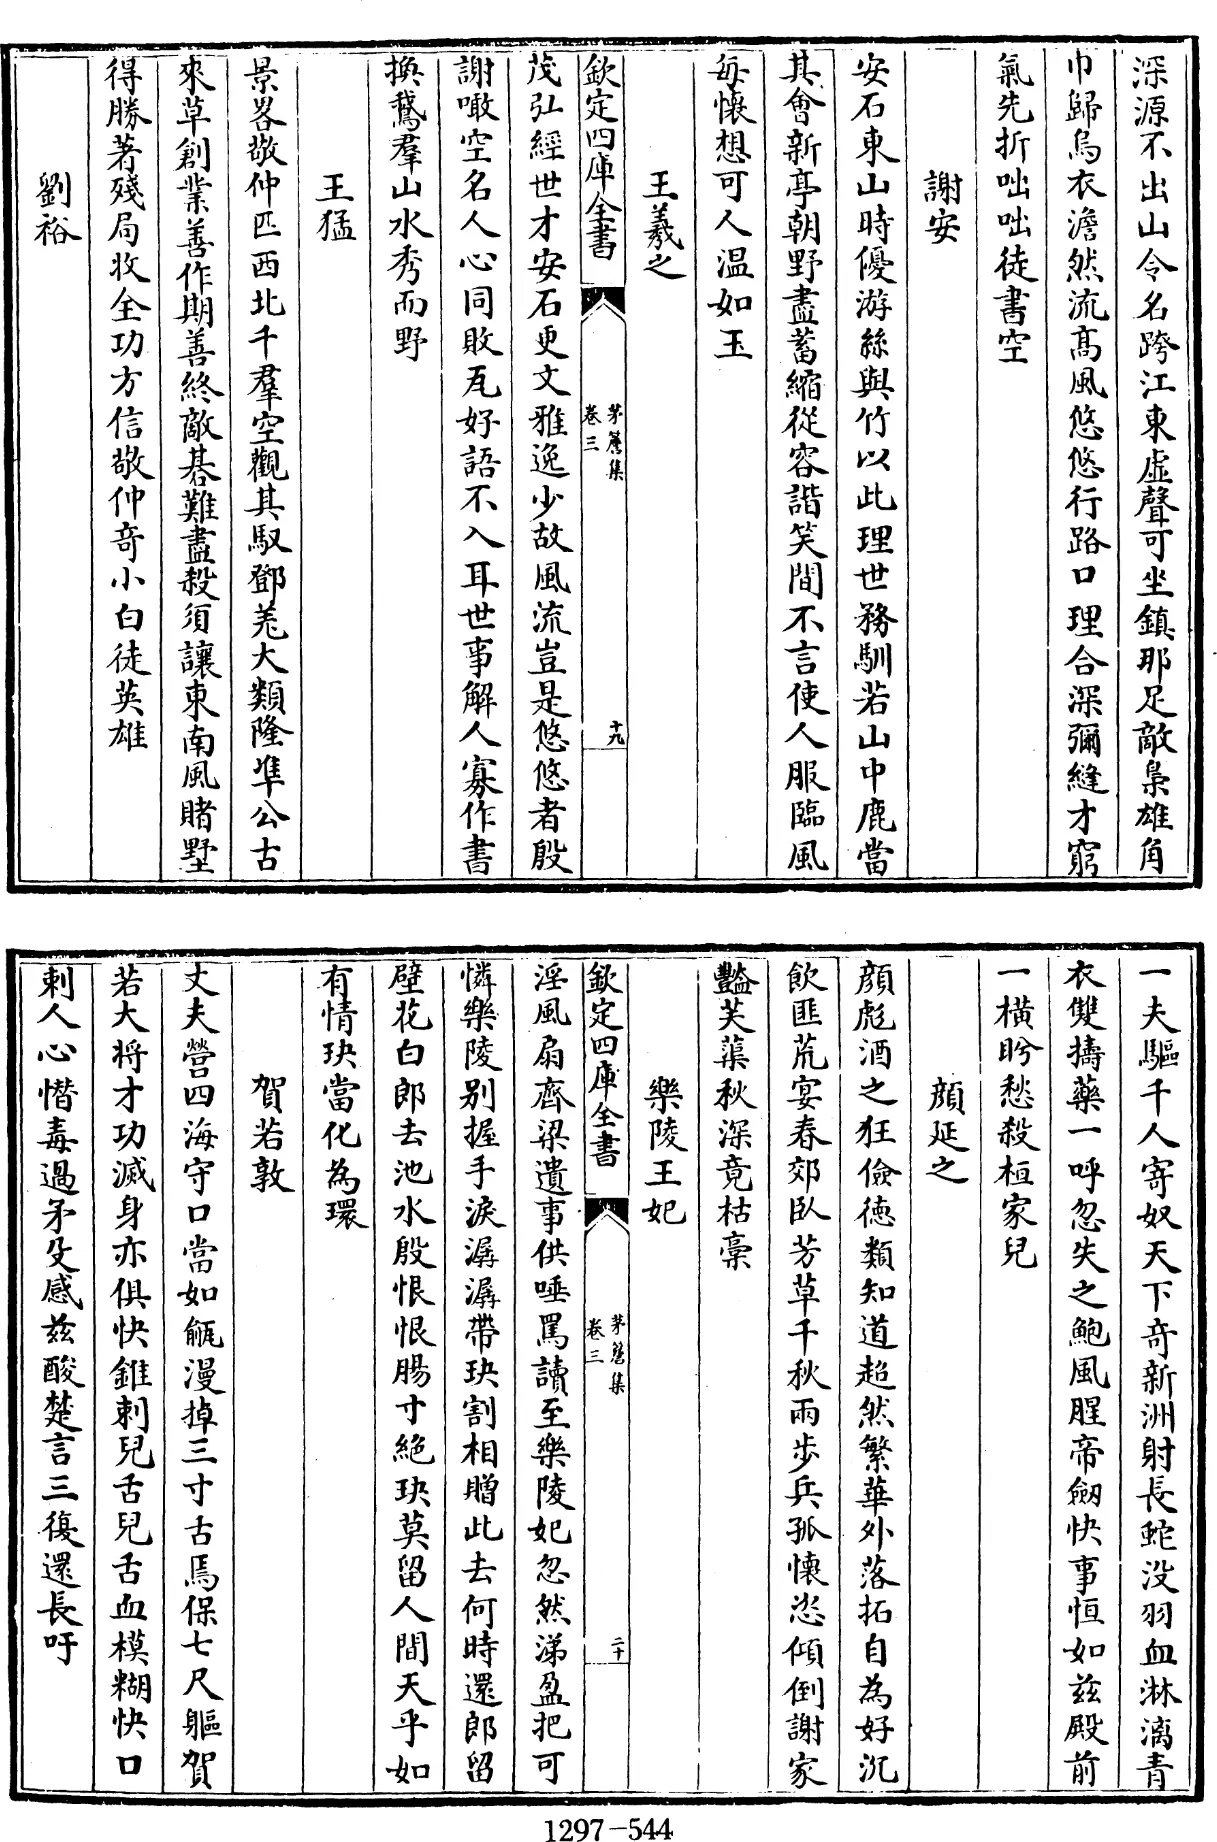 深源不出山令名跨江東虛聲可坐鎮那足敵梟雄角
巾歸烏衣澹然流高風悠悠行路口理合深彌縫才窮
氣先折咄咄徒書空
謝安
安石東山時優游絲與竹以此理世務馴若山中鹿當
其會新亭朝野盡蓄縮從容諧笑間不言使人服臨風
每懷想可人温如玉
王羲之
欽定四庫全書
茅簷集
卷三
十九
茂弘經世才安石更文雅逸少故風流豈是悠悠者殷
謝噉空名人心同敗瓦好語不入耳世事解人寡作書
換鵞羣山水秀而野
王猛
景畧敬仲匹西北千羣空觀其馭鄧羌大類隆準公古
來草創業善作期善終敵棊難盡殺須讓東南風賭墅
得勝著殘局收全功方信敬仲奇小白徒英雄
劉裕
一夫驅千人寄奴天下奇新洲射長蛇没羽血淋漓青
衣雙擣藥一呼忽失之鮑風腥帝劒快事恒如兹殿前
一橫盻愁殺桓家兒
顔延之
顔彪酒之狂儉徳類知道超然繁華外落拓自為好沉
飲匪荒宴春郊臥芳草千秋兩步兵孤懷恣傾倒謝家
豔芙蕖秋深竟枯槀
樂陵王妃
欽定四庫全書
茅簷集
卷三
二十
淫風扇齊梁遺事供唾罵讀至樂陵妃忽然涕盈把可
憐樂陵别握手淚潺潺帶玦割相贈此去何時還郎留
壁花白郎去池水殷恨恨腸寸絶玦莫留人間天乎如
有情玦當化為環
賀若敦
丈夫營四海守口當如瓶漫掉三寸舌焉保七尺軀賀
若大將才功滅身亦俱快錐刺兒舌兒舌血模糊快口
刺人心憯毒過矛殳感兹酸楚言三復還長吁
1297-544